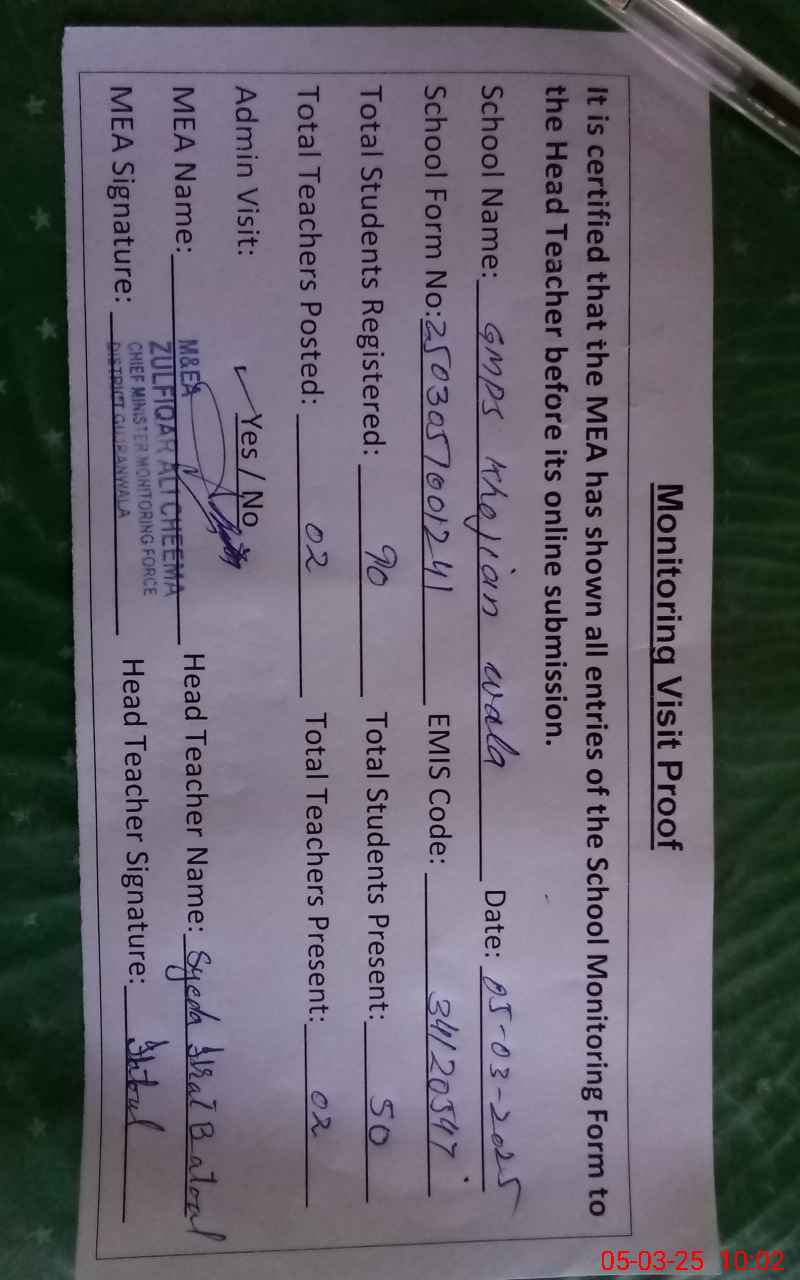 Monitoring Visit Proof
It is certified that the MEA has shown all entries of the School Monitoring Form to
the Head Teacher before its online submission.
School Name: GMPS Khojian wala Date: 05-03-2025
School Form No: 2503057001241 EMIS Code: 34120547
Total Students Registered: 90 Total Students Present: 50
Total Teachers Posted: 02 Total Teachers Present: 02
Admin Visit: ✓ Yes / No
MEA Name: Head Teacher Name: Syeda Batool
MEA Signature: Head Teacher Signature:
M&EA
ZULFIQAR ALI CHEEMA
CHIEF MINISTER MONITORING FORCE
DISTRICT GUJRANWALA
05-03-25 10:02